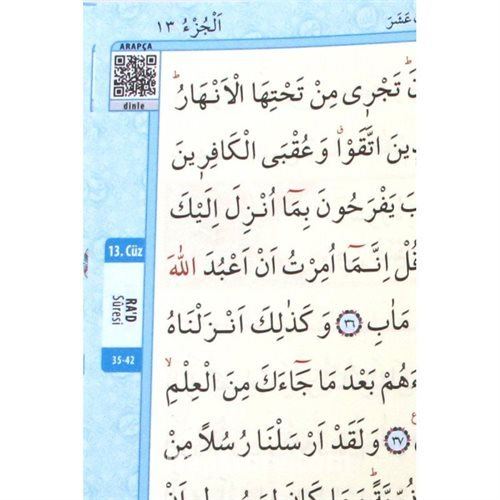 اَلْجُزْءُ ١٣
عَشَرَ
ARAPÇA
dinle
تَجْرٖي مِنْ تَحْتِهَا الْاَنْهَارُ
اتَّقَوْا وَعُقْبَى الْكَافِرٖينَ
يَفْرَحُونَ بِمَٓا اُنْزِلَ اِلَيْكَ
قُلْ اِنَّمَٓا اُمِرْتُ اَنْ اَعْبُدَ اللّٰهَ
مَاٰبِ ٣٦ وَكَذٰلِكَ اَنْزَلْنَاهُ
بَعْدَ مَا جَٓاءَكَ مِنَ الْعِلْمِ
٣٧ وَلَقَدْ اَرْسَلْنَا رُسُلًا مِنْ
وَمَا كَانَ لِرَسُولٍ اَنْ
13. Cüz
RA'D
Sûresi
35-42